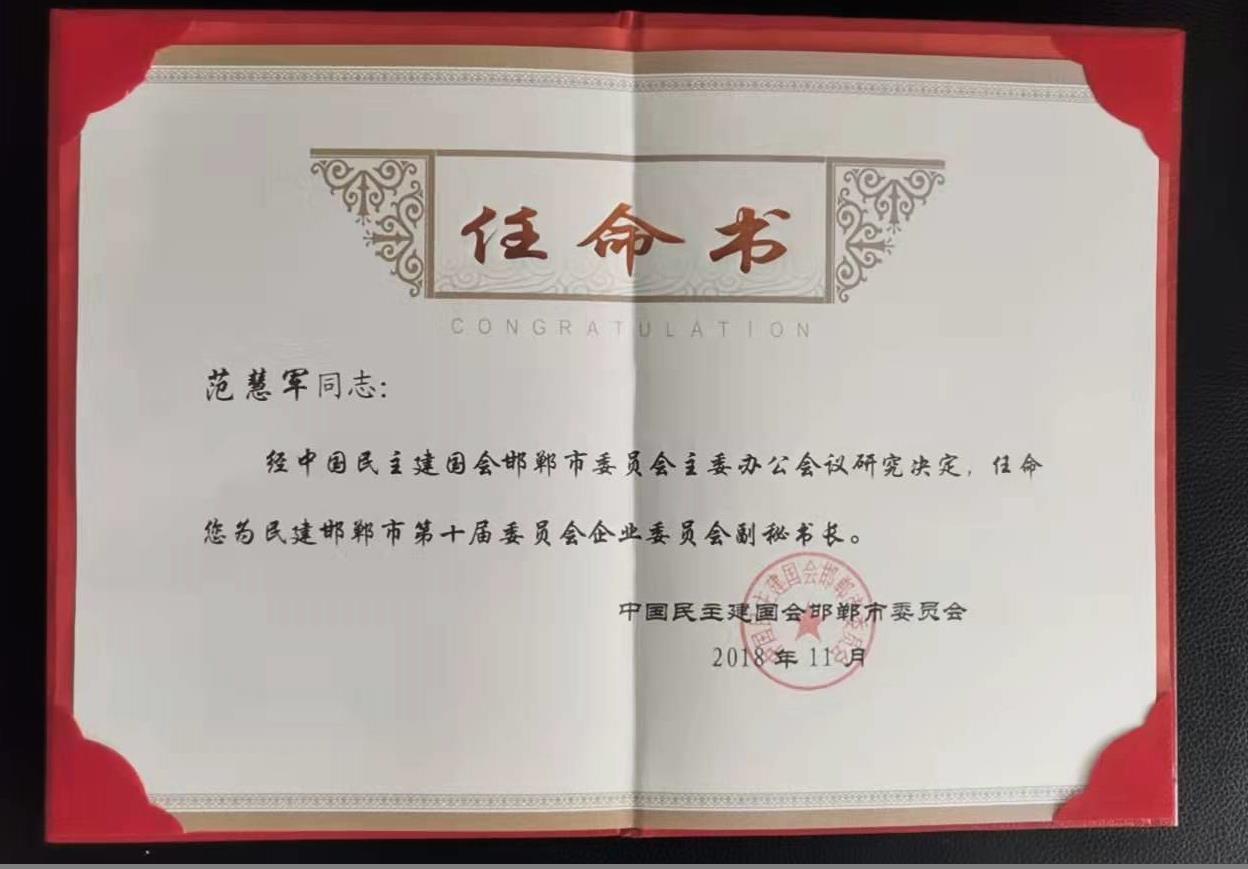 任命书
CONGRATULATION
范慧军同志:
经中国民主建国会邯郸市委员会主委办公会议研究决定,任命
您为民建邯郸市第十届委员会企业委员会副秘书长。
中国民主建国会邯郸市委员会
2018年11月
中国民主建国会邯郸市委员会